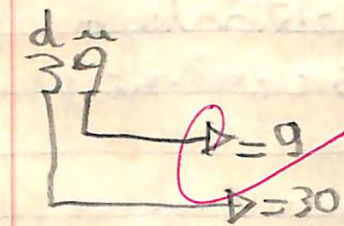 d u
39
=9
=30